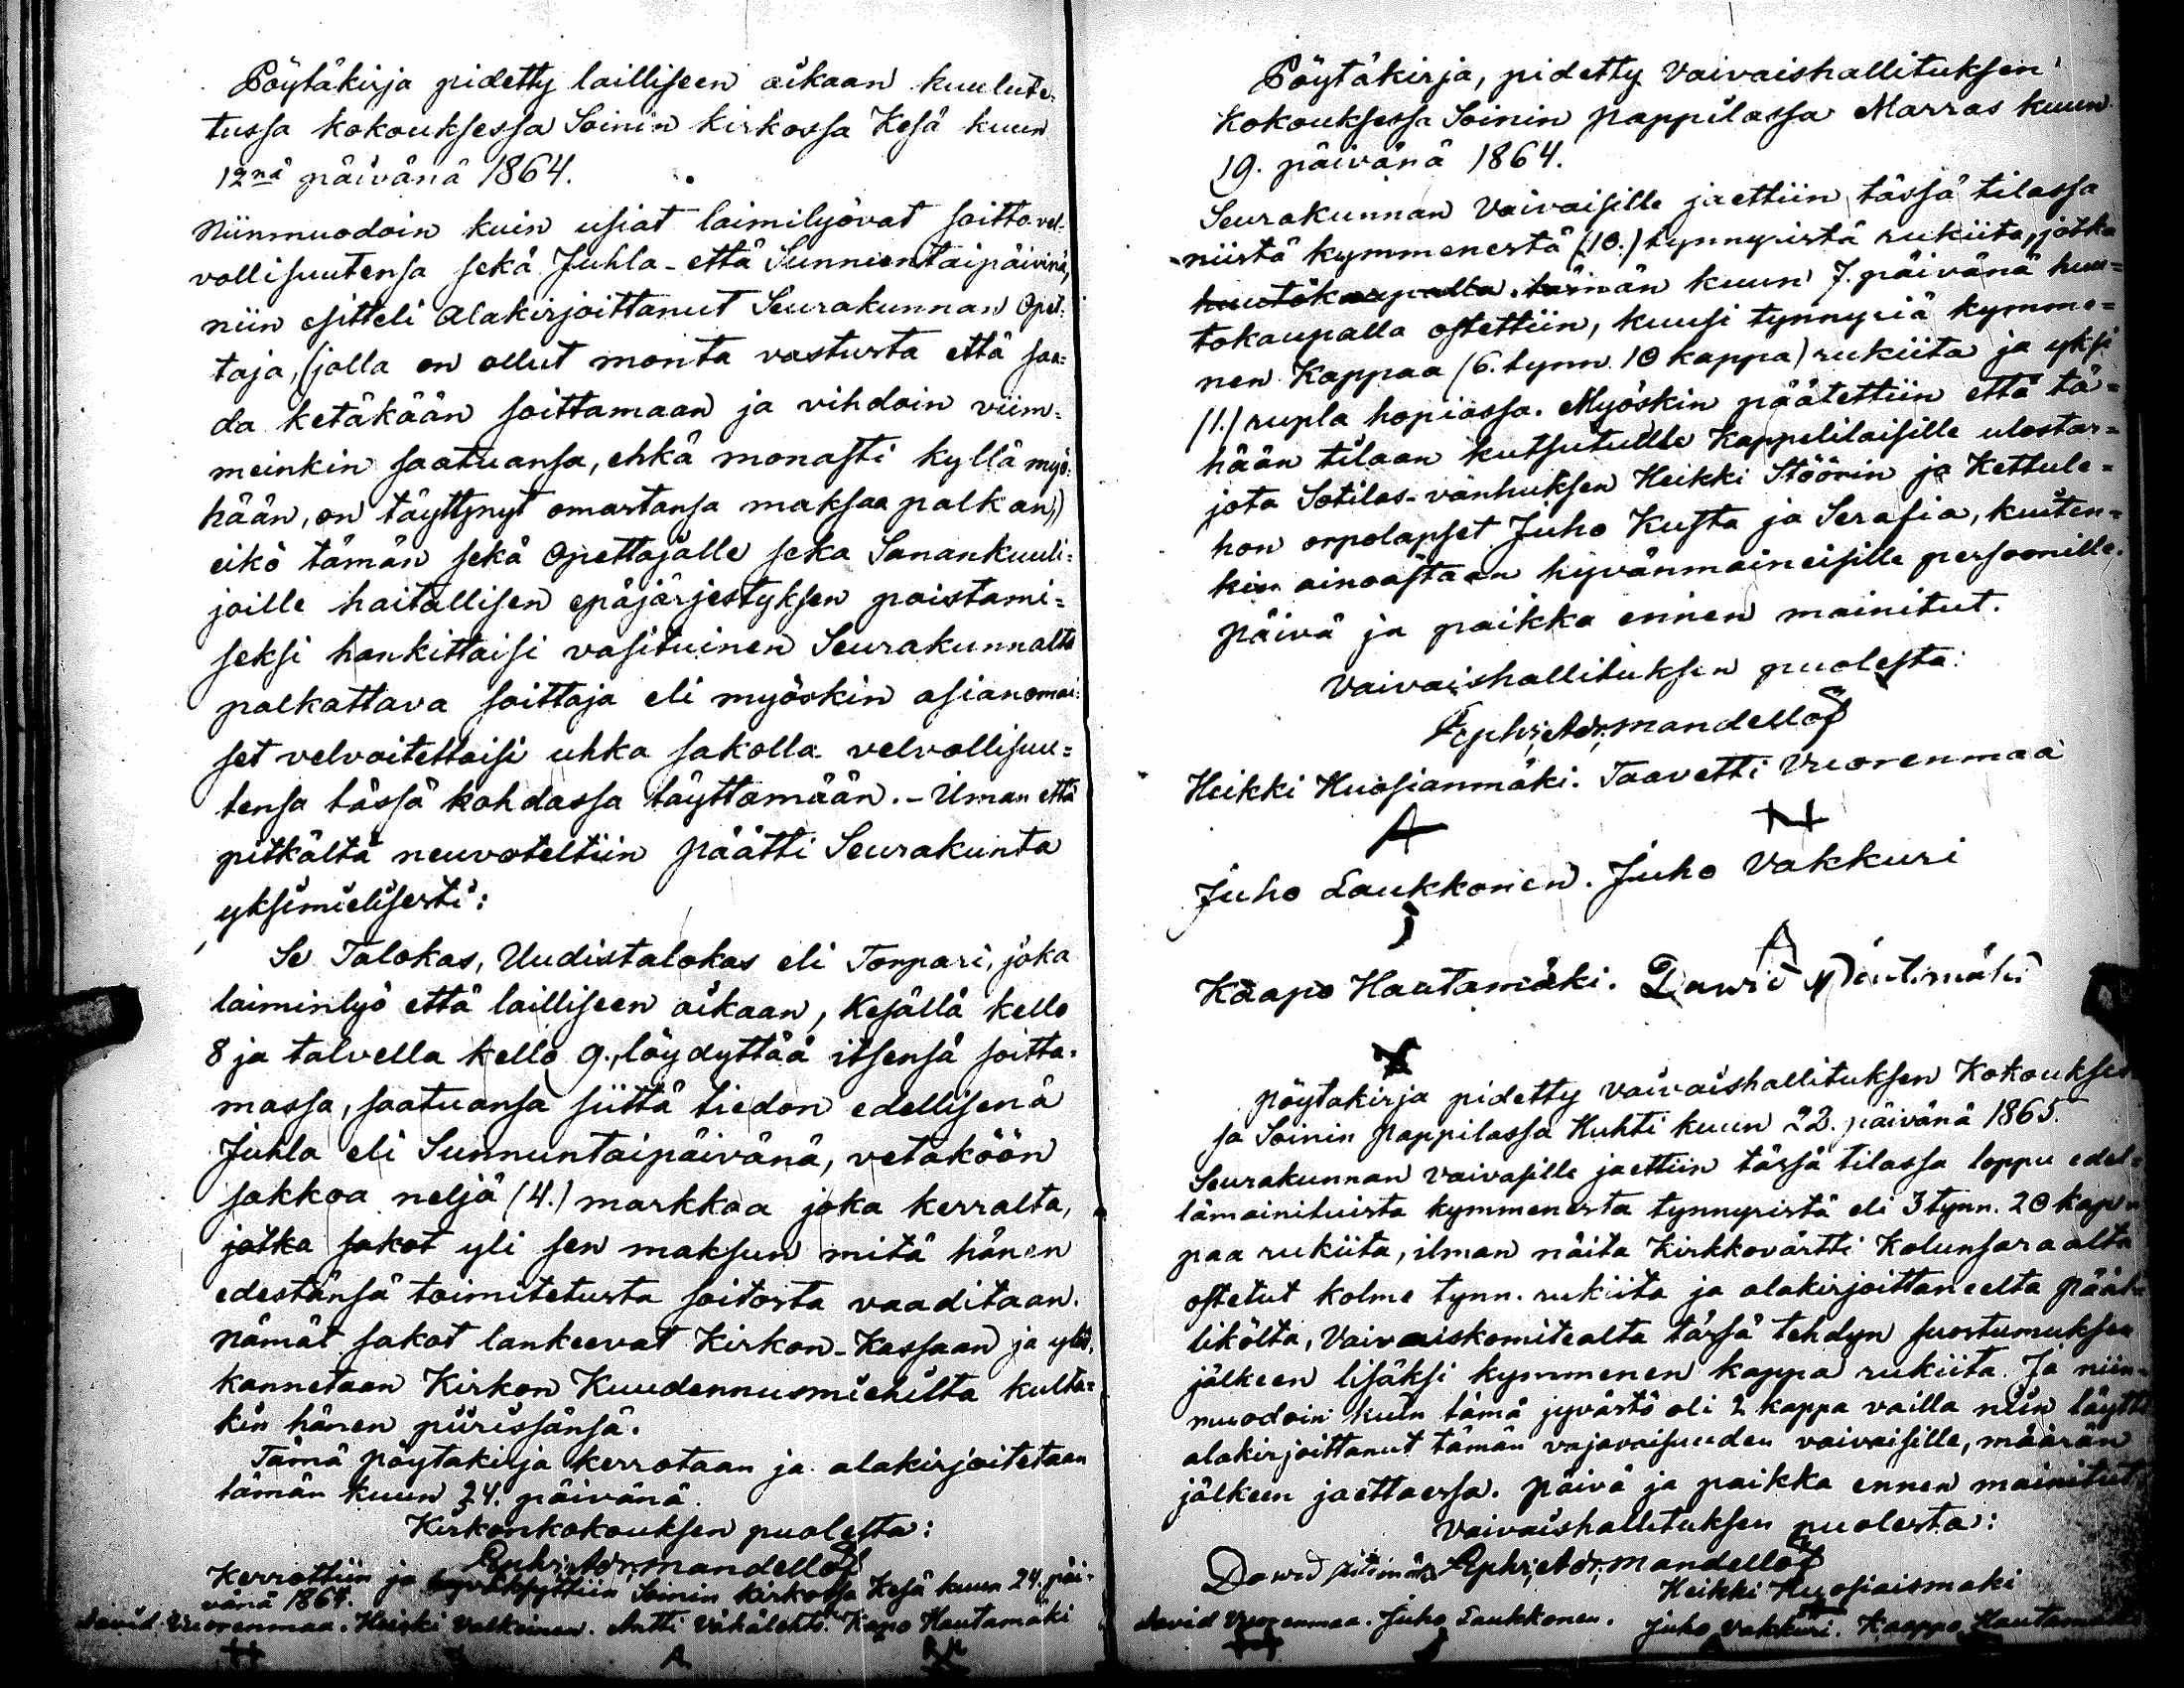 Pöytäkirja pidetty lailliseen aikaan kuulute-
tussa kokouksessa Soinin kirkossa Kesä kuun
12nä päivänä 1864.
Niinmuodoin kuin usiat laimilyövät soittovel-
vollisuutensa sekä Juhla- että Sunnuntaipäivinä,
niin esitteli Alakirjoittanut Seurakunnan Opet-
taja, (jolla on ollut monta vastusta että saa-
da ketäkään soittamaan ja vihdoin viim-
meinkin saatuansa, ehkä monasti kyllä myö-
hään, on täyttynyt omastansa maksaa palkan,)
eikö tämän sekä Opettajalle seka Sanankuuli-
joille haitallisen epäjärjestyksen poistami-
seksi hankittaisi vasituinen Seurakunnalta
palkattava soittaja eli myöskin asianomai-
set velvoitettaisi uhka sakolla velvollisuu-
tensa tässä kohdassa täyttämään. - Ilman että
pitkältä neuvoteltiin päätti Seurakunta
yksimielisesti:
Se Talokas, Uudistalokas eli Torpari, joka
laiminlyö että lailliseen aikaan, Kesällä kello
8 ja talvella kello 9., löydyttää itsensä soitta-
massa, saatuansa siittä tiedon edellisenä
Juhla eli Sunnuntaipäivänä, vetäköön
sakkoa neljä (4.) markkaa joka kerralta,
jotka sakot yli sen maksun mitä hänen
edestänsä toimitetusta soitosta vaaditaan.
Nämät sakot lankeevat Kirkon-Kassaan ja ylös-
kannetaan Kirkon Kuudennusmiehiltä kulta-
kin hänen piirissänsä.
Tämä pöytäkirja kerrotaan ja alakirjoitetaan
tämän kuun 24. päivänä.
Kirkonkokouksen puolesta:
Ephr. Adr. Mandellöf
Kerrottiin ja hyväksyttiin Soinin kirkossa Kesä kuun 24. päi-
vänä 1864.
David Vuorenmaa. Heikki Valkeinen. Antti Väkälehto. Kapo Hautamäki
Pöytäkirja, pidetty Vaivaishallituksen
kokouksessa Soinin pappilassa Marras kuun
19. päivänä 1864.
Seurakunnan Vaivaisille jaettiin tässä tilassa
niistä kymmenestä (10.) tynnyristä rukiita, jotka
huutokaupalla tämän kuun 7. päivänä huu-
tokaupalla ostettiin, kuusi tynnyriä kymme-
nen Kappaa (6. tynn. 10 kappa) rukiita ja yksi
(1.) rupla hopiassa. Myöskin päätettiin että tä-
hään tilaan kutsutuille Kappelilaisille ulostar-
jota Sotilas-vanhuksen Heikki Stöörin ja Kettule-
hon orpolapset Juho Kusta ja Serafia, kuiten-
kin ainoastaan hyvänmaineisille persoonille.
Päivä ja paikka ennen mainitut.
Vaivaishallituksen puolesta:
Ephr. Adr. Mandellöf
Heikki Huosianmäki. Taavetti Vuorenmaa
Juho Laukkonen. Juho Vakkuri
Kaapo Hautamäki. Dawid
Pöytäkirja pidetty vaivaishallituksen Kokoukses-
sa Soinin Pappilassa Huhti kuun 22. päivänä 1865.
Seurakunnan Vaivasille jaettiin tässä tilassa loppu edel-
lämainituista kymmenesta tynnyristä eli 3 tynn. 20 kap-
paa rukiita, ilman näita Kirkkovärtti Kolunsaraalta
ostetut kolme tynn. rukiita ja alakirjoittaneelta pääl-
likölta, Vaivaiskomitealta tässä tehdyn suostumuksen
jälkeen lisäksi kymmenen kappa rukiita. Ja niin-
muodoin kuin tämä jyvästö oli 2 kappa vailla niin täytti
alakirjoittanut tämän vajavaisuuden vaivaisille, määrän
jälkeen jaettaessa. Päivä ja paikka ennen mainitut.
Vaivaishallituksen puolesta:
Dawid Ephr. Adr. Mandellöf
Heikki Huosiaismaki
David Vuorenmaa. Juho Laukkonen. Juho Vakkuri. Kaappo Hautamäki